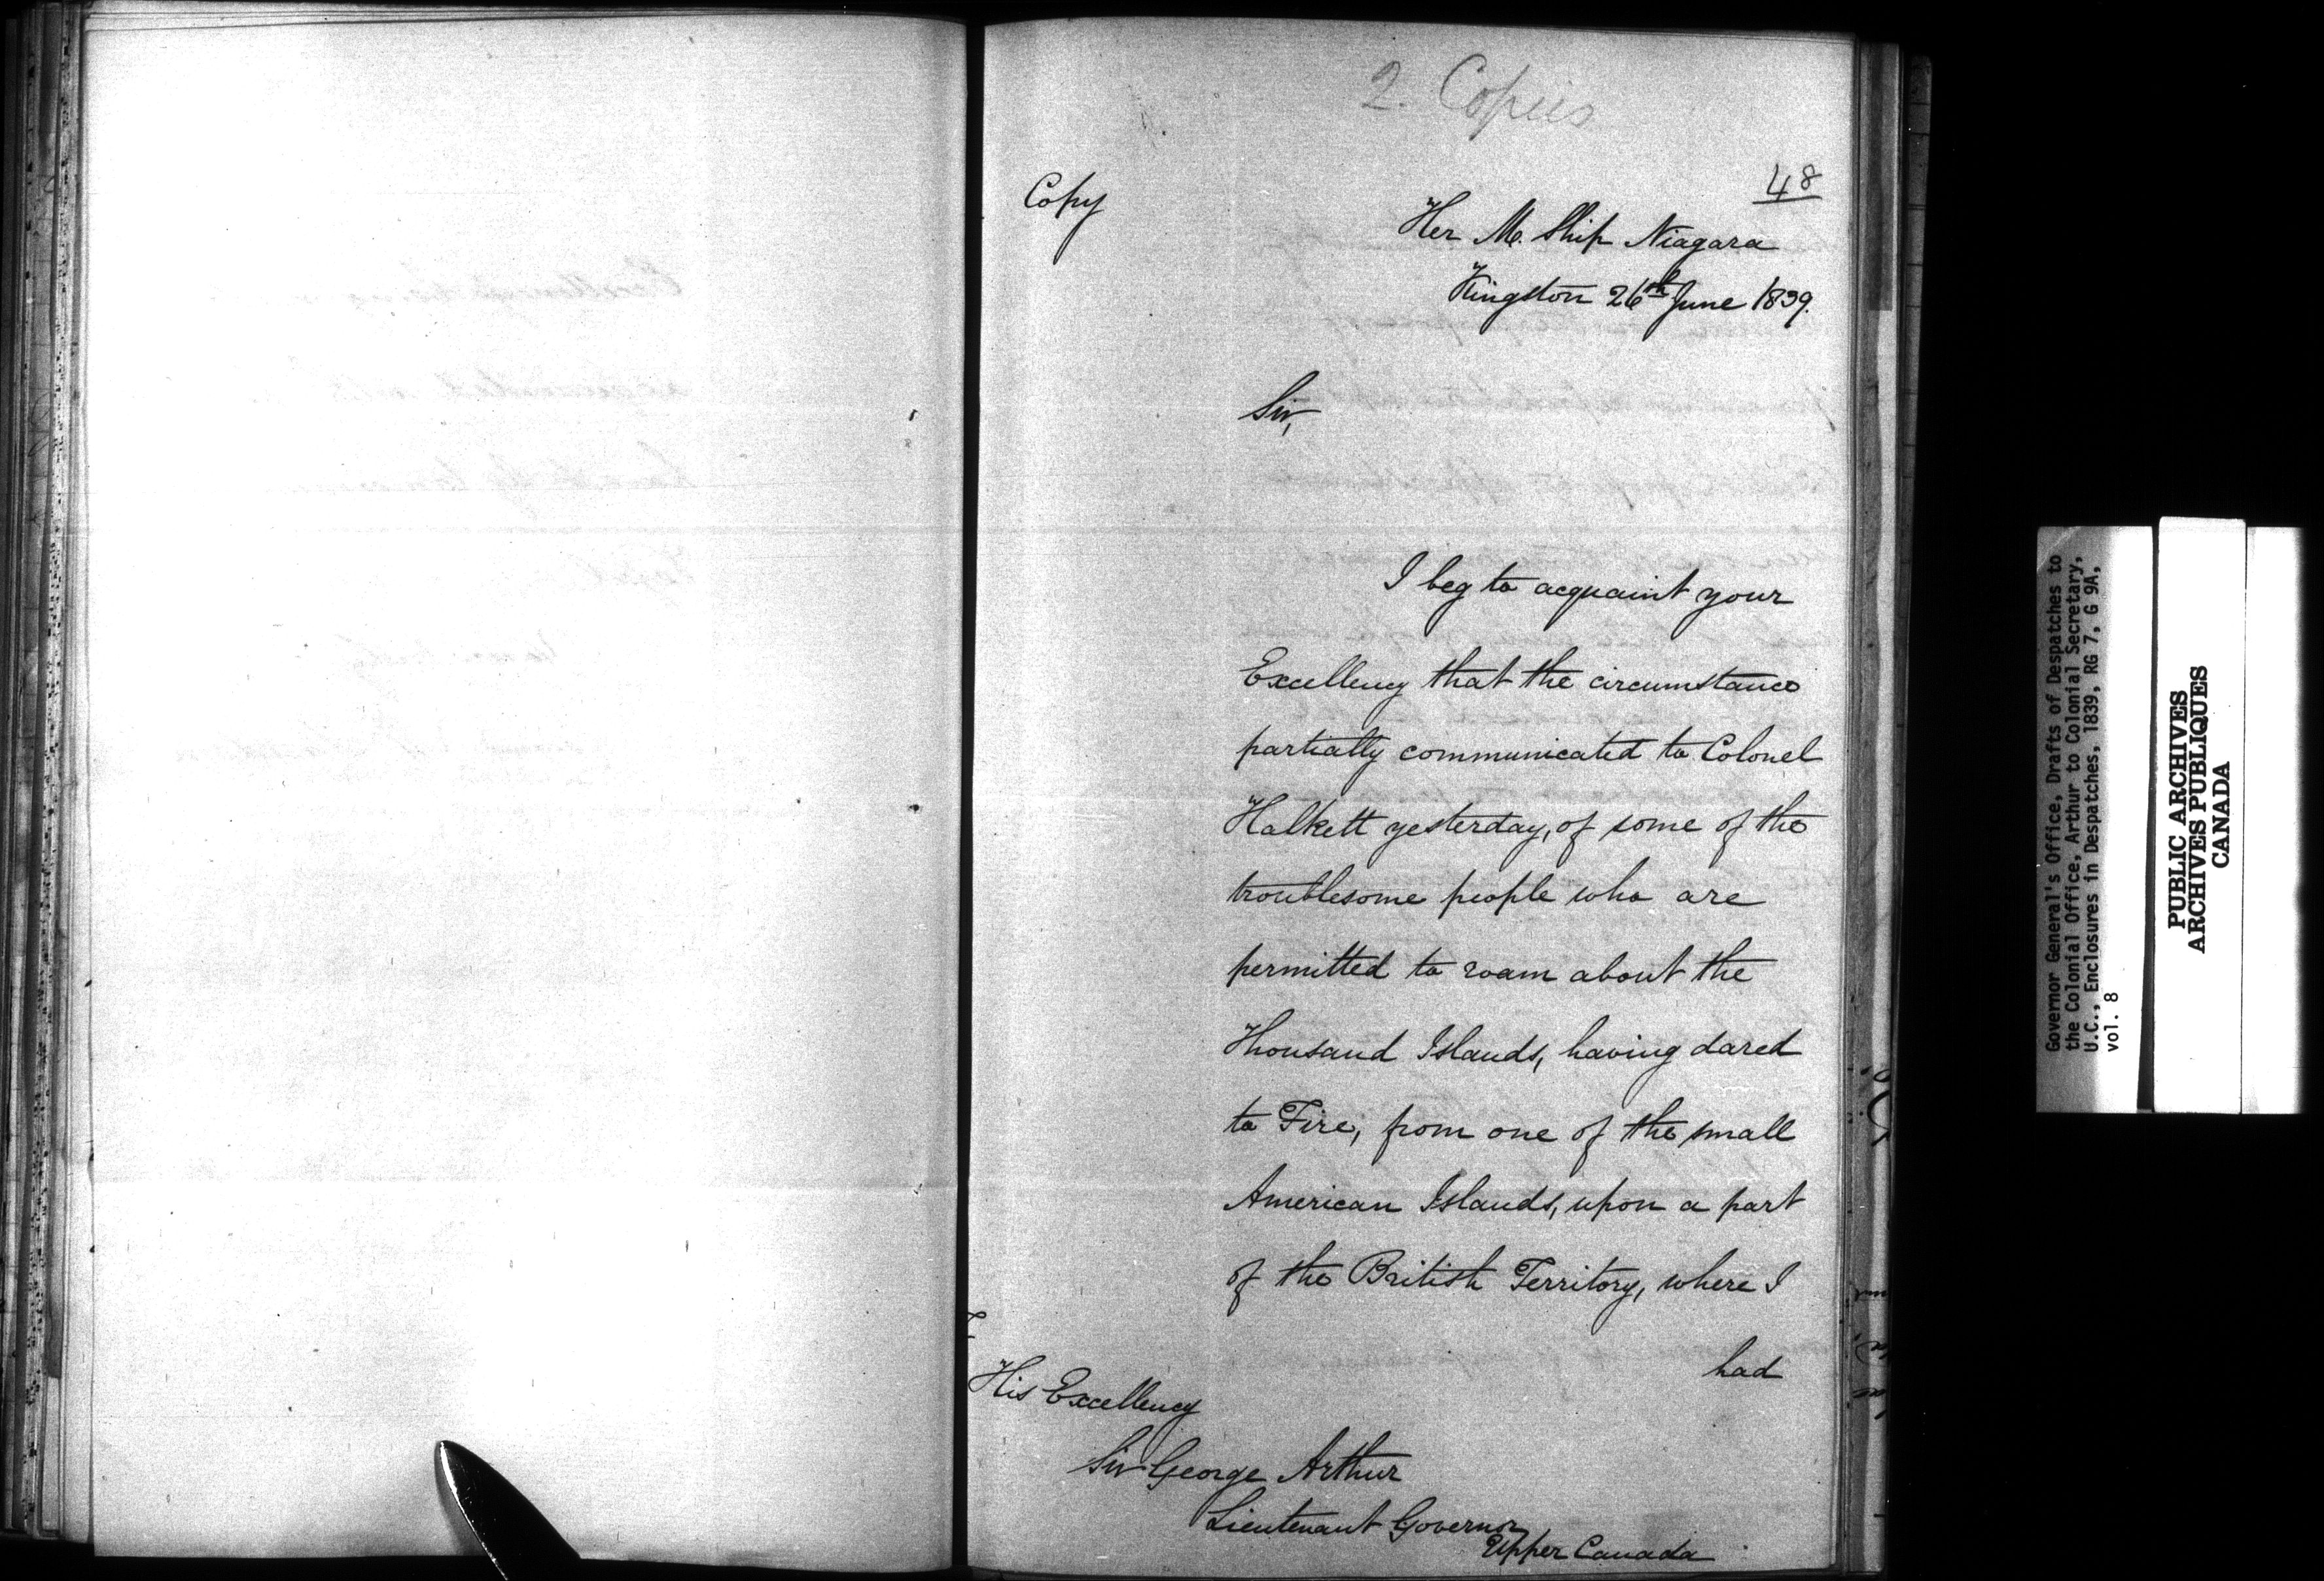 2. Copies
48
Copy
Her M. Ship Niagara
Kingston 26th June 1839.
Sir,
I beg to acquaint your
Excellency that the circumstance
partially communicated to Colonel
Halkett yesterday, of some of the
troublesome people who are
permitted to roam about the
Thousand Islands, having dared
to Fire, from one of the small
American Islands, upon a part
of the British Territory, where I
had
His Excellency
Sir George Arthur
Lieutenant Governor
Upper Canada
Governor General's Office, Drafts of Despatches to
the Colonial Office, Arthur to Colonial Secretary,
U.C., Enclosures in Despatches, 1839, RG 7, G 9A,
vol. 8
PUBLIC ARCHIVES
ARCHIVES PUBLIQUES
CANADA